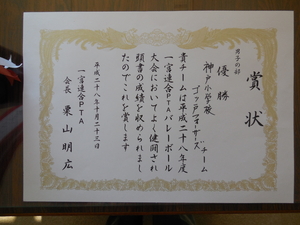 賞状
男子の部
優勝
神戸小学校
ゴッデスマザーズチーム
貴チームは平成二十八年度
一宮連合PTAバレーボール
大会においてよく健闘され
頭書の成績を収められまし
たのでこれを賞します
平成二十八年十月二十三日
一宮連合PTA
会長 栗山明広